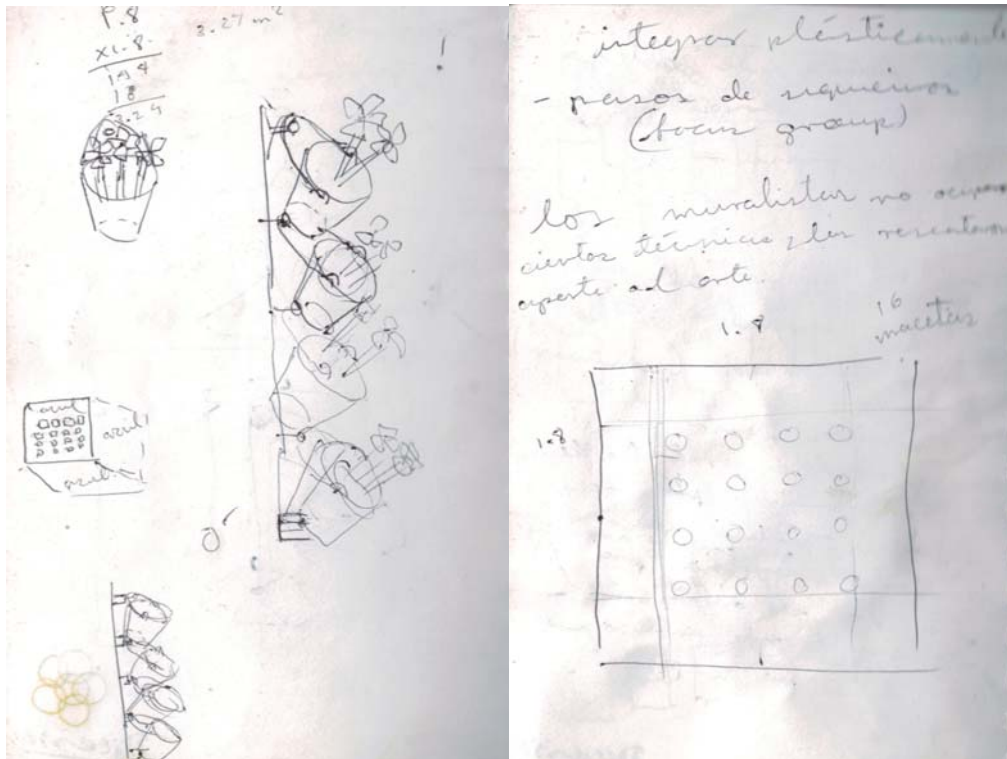 P.8
x1.8
144
18
3.24
3.27 m²
!
azul
azul
azul
integrar plásticamente
- pasos de siqueiros
(focus group)
los muralistas no
ciertas técnicas
aporte al arte.
1.8
16
macetas
1.8